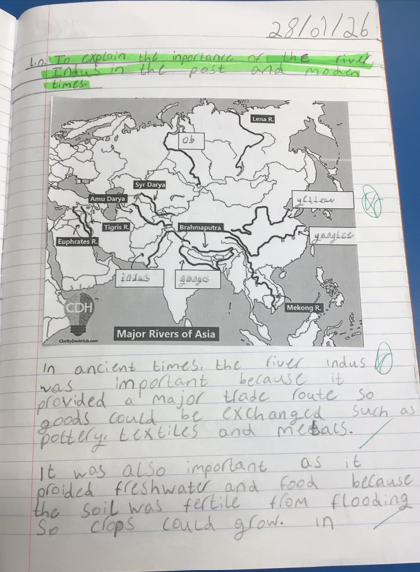 28/01/26
L.O. To explain the inportance of the river
Indus in the past and modern
times.
Lena R.
Ob
Syr Darya
Amu Darya
yellow
Tigris R.
Brahmaputra
yangtze
Euphrates R.
indus
ganges
CDH
Mekong R.
ClarityDeskHub.com
Major Rivers of Asia
In ancient times, the river indus
was important because it
provided a major trade route so
goods could be exchanged such as
pottery, textiles and metals.
It was also important as it
proided freshwater and food because
the soil was fertile from flooding
so crops could grow. In